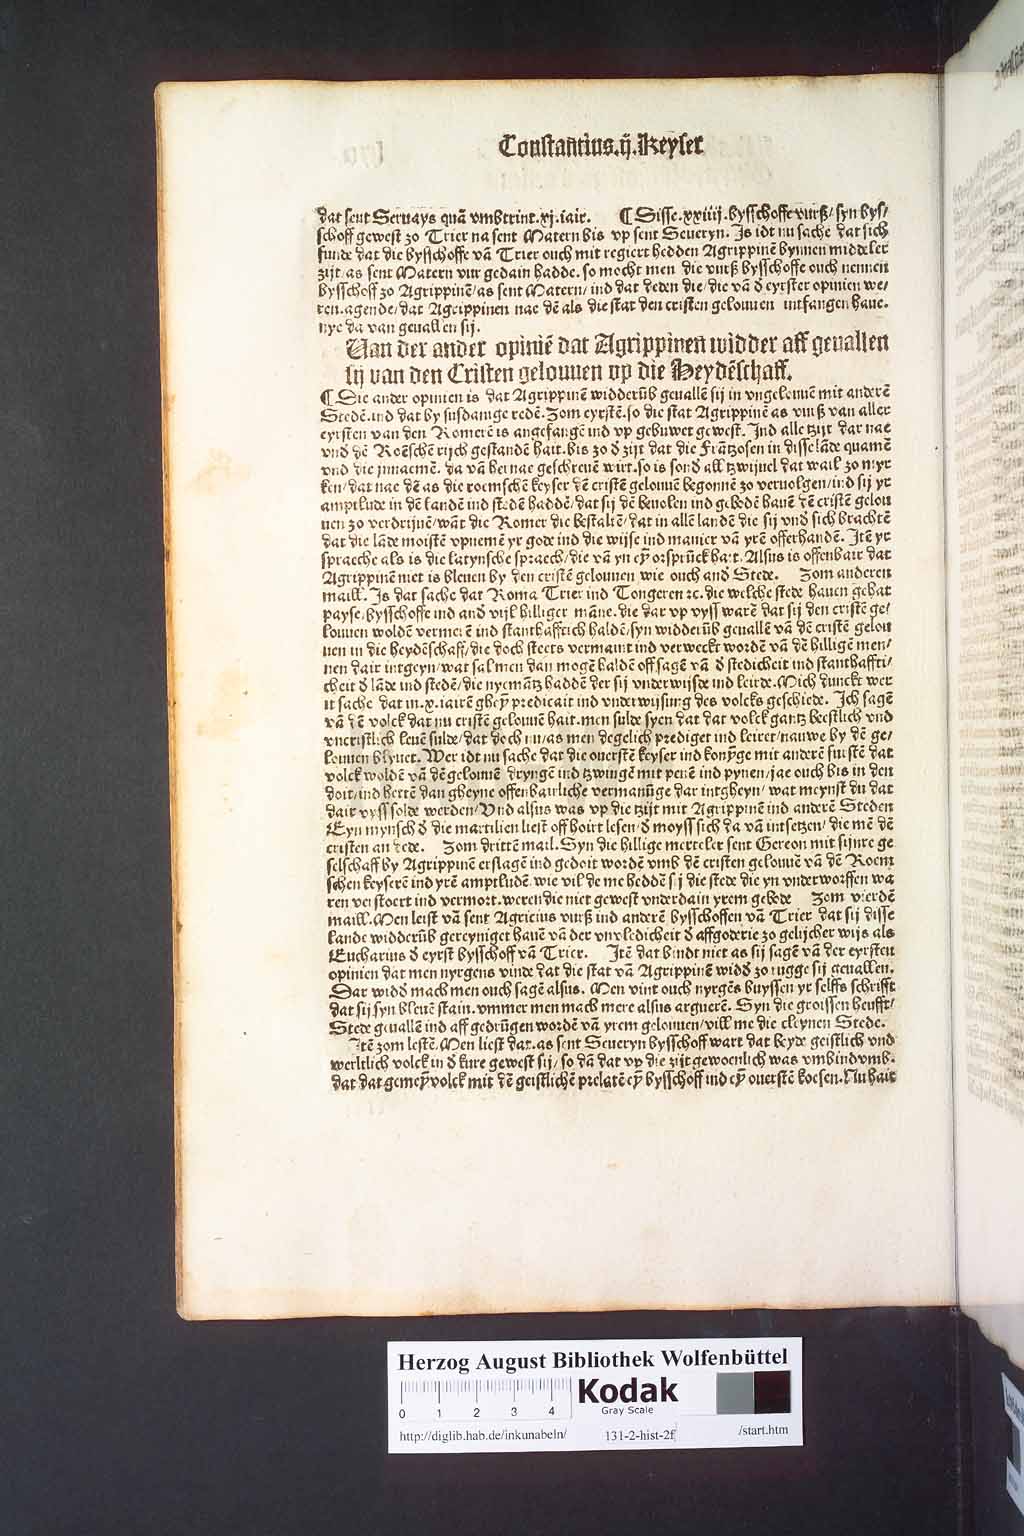 Constantius.ij.Keyser
dat sent Seruays quā vmbtrint.xj.iair. ¶ Disse.xxiiij.bysschoffe vurß/ syn bys/
schoff gewest zo Trier na sent Matern bis vp sent Seueryn. Is idt nu sache dat sich
funde dat die bysschoffe vā Trier ouch mit regiert hedden Agrippinē bynnen middeler
zijt.as sent Matern vur gedain hadde. so mocht men die vurß bysschoffe ouch nennen
bysschoff zo Agrippinē/as sent Matern/ ind dat deden die/die vā ď eyrster opinien we/
ren.agende/dat Agrippinen nae dē als die stat den cristen gelouuen intfangen haue.
nye da van geuallen sij.
Uan der ander opiniē dat Agrippinen widder aff geuallen
sij van den Cristen gelouuen vp die Heydēschaff.
¶ Die ander opinien is dat Agrippinē widderūb geuallē sij in vngelouuē mit anderē
Stedē.ind dat by susdanige redē. Zom eyrstē.so die stat Agrippinē as vurß van aller
eyrsten van den Romerē is angefangē ind vp gebuwet gewest. Ind alle tzijt dar nae
vnd dē Roēschē rijch gestandē hait.bis zo ď zijt dat die Frātzosen in disse lāde quamē
vnd die innaemē. da vā hei nae geschreuē wirt.so is sonď all tzwijuel dat wail zo myr
ken/dat nae dē as die roemschē keyser dē cristē gelouuē begonnē zo veruolgen/ind sij yr
amptlude in dē landē ind stedē haddē/dat sij dē beuolen ind gebodē hauē dē cristē gelou
uen zo verdrijuē/wāt die Romer die bestaltē/dat in allē landē die sij vnď sich brachtē
dat die lāde moistē vpnemē yr gode ind die wijse ind manier vā yrē offerhandē. Itē yr
spraeche als is die latynsche spraech/die vā yn eȳ orsprūck hait. Alsus is offenbair dat
Agrippinē niet is bleuen by den cristē gelouuen wie ouch anď Stede. Zom anderen
maill. Is dat sache dat Roma Trier ind Tongeren ꝛc. die welche stede hauen gehat
payse/bysschoffe ind anď vijl hilliger māne. die dar vp vyss warē dat sij den cristē ge/
louuen woldē vermerē ind stanthafftich haldē/syn widderūb geuallē vā dē cristē gelou
uen in die heydēschaff/die doch steets vermaint ind verweckt wordē vā dē hilligē men/
nen dair intgeyn/wat sal men dan mogē haldē off sagē vā ď stedicheit ind stanthaffti/
cheit ď lāde ind stedē/die nyemātz haddē der sij vnderwijsde ind leirde. Mich dunckt wer
it sache dat in.x.iairē gheȳ predicait ind vnderwijsung des volcks geschiede. Ich sagē
vā dē volck dat nu cristē gelouuē hait.men sulde syen dat dat volck gantz beestlich vnd
vncristlich leuē sulde/dat doch nu/as men degelich prediget ind leiret/nauwe by dē ge/
louuen blyuet. Wer idt nu sache dat die ouerstē keyser ind konȳge mit anderē furstē dat
volck woldē vā dē gelouuē dryngē ind tzwingē mit penē ind pynen/jae ouch bis in den
doit/ind hettē dan gheyne offenbairliche vermanūge dar intgheyn/ wat meynst du dat
dair vyss solde werden/Vnd alsus was vp die tzijt mit Agrippinē ind anderē Steden
Eyn mynsch ď die martilien liest off hoirt lesen/ď moyss sich da vā intsetzen/ die mē dē
cristen an dede. Zom drittē mail. Syn die hillige merteler sent Gereon mit sijnre ge
selschaff by Agrippinē erslagē ind gedoit wordē vmb dē cristen gelouuē vā dē Roem
schen keyserē ind yrē amptludē.wie vil de me heddē sij die stede die yn vnderworffen wa
ren verstoert ind vermort.weren die niet gewest vnderdain yrem gebode Zom vierdē
maill. Men leist vā sent Agricius vurß ind anderē bysschoffen vā Trier dat sij disse
lande widderūb gereyniget hauē vā der vnvledicheit ď affgoderie zo gelijcher wijs als
Eucharius ď eyrst bysschoff vā Trier. Itē dat bindt niet as sij sagē vā der eyrsten
opinien dat men nyrgens vinde dat die stat vā Agrippinē widď zo rugge sij geuallen.
Dar widď mach men ouch sagē alsus. Men vint ouch nyrgēs buyssen yr selffs schrifft
dat sij syn bleuē stain.vmmer men mach mere alsus arguerē. Syn die groissen heufft/
Stede geuallē ind aff gedrūgen wordē vā yrem gelouuen/vill me die cleynen Stede.
Itē zom lestē. Men liest dat.as sent Seueryn bysschoff wart dat beyde geistlich vnd
werltlich volck in ď kure gewest sij/ so dā dat vp die zijt gewoenlich was vmbindvmb.
dat dat gemeȳ volck mit dē geistlichē prelatē eȳ bysschoff ind eȳ ouerstē koesen. Nu hait
Herzog August Bibliothek Wolfenbüttel
0 1 2 3 4 Kodak
Gray Scale
http://diglib.hab.de/inkunabeln/ 131-2-hist-2f /start.htm